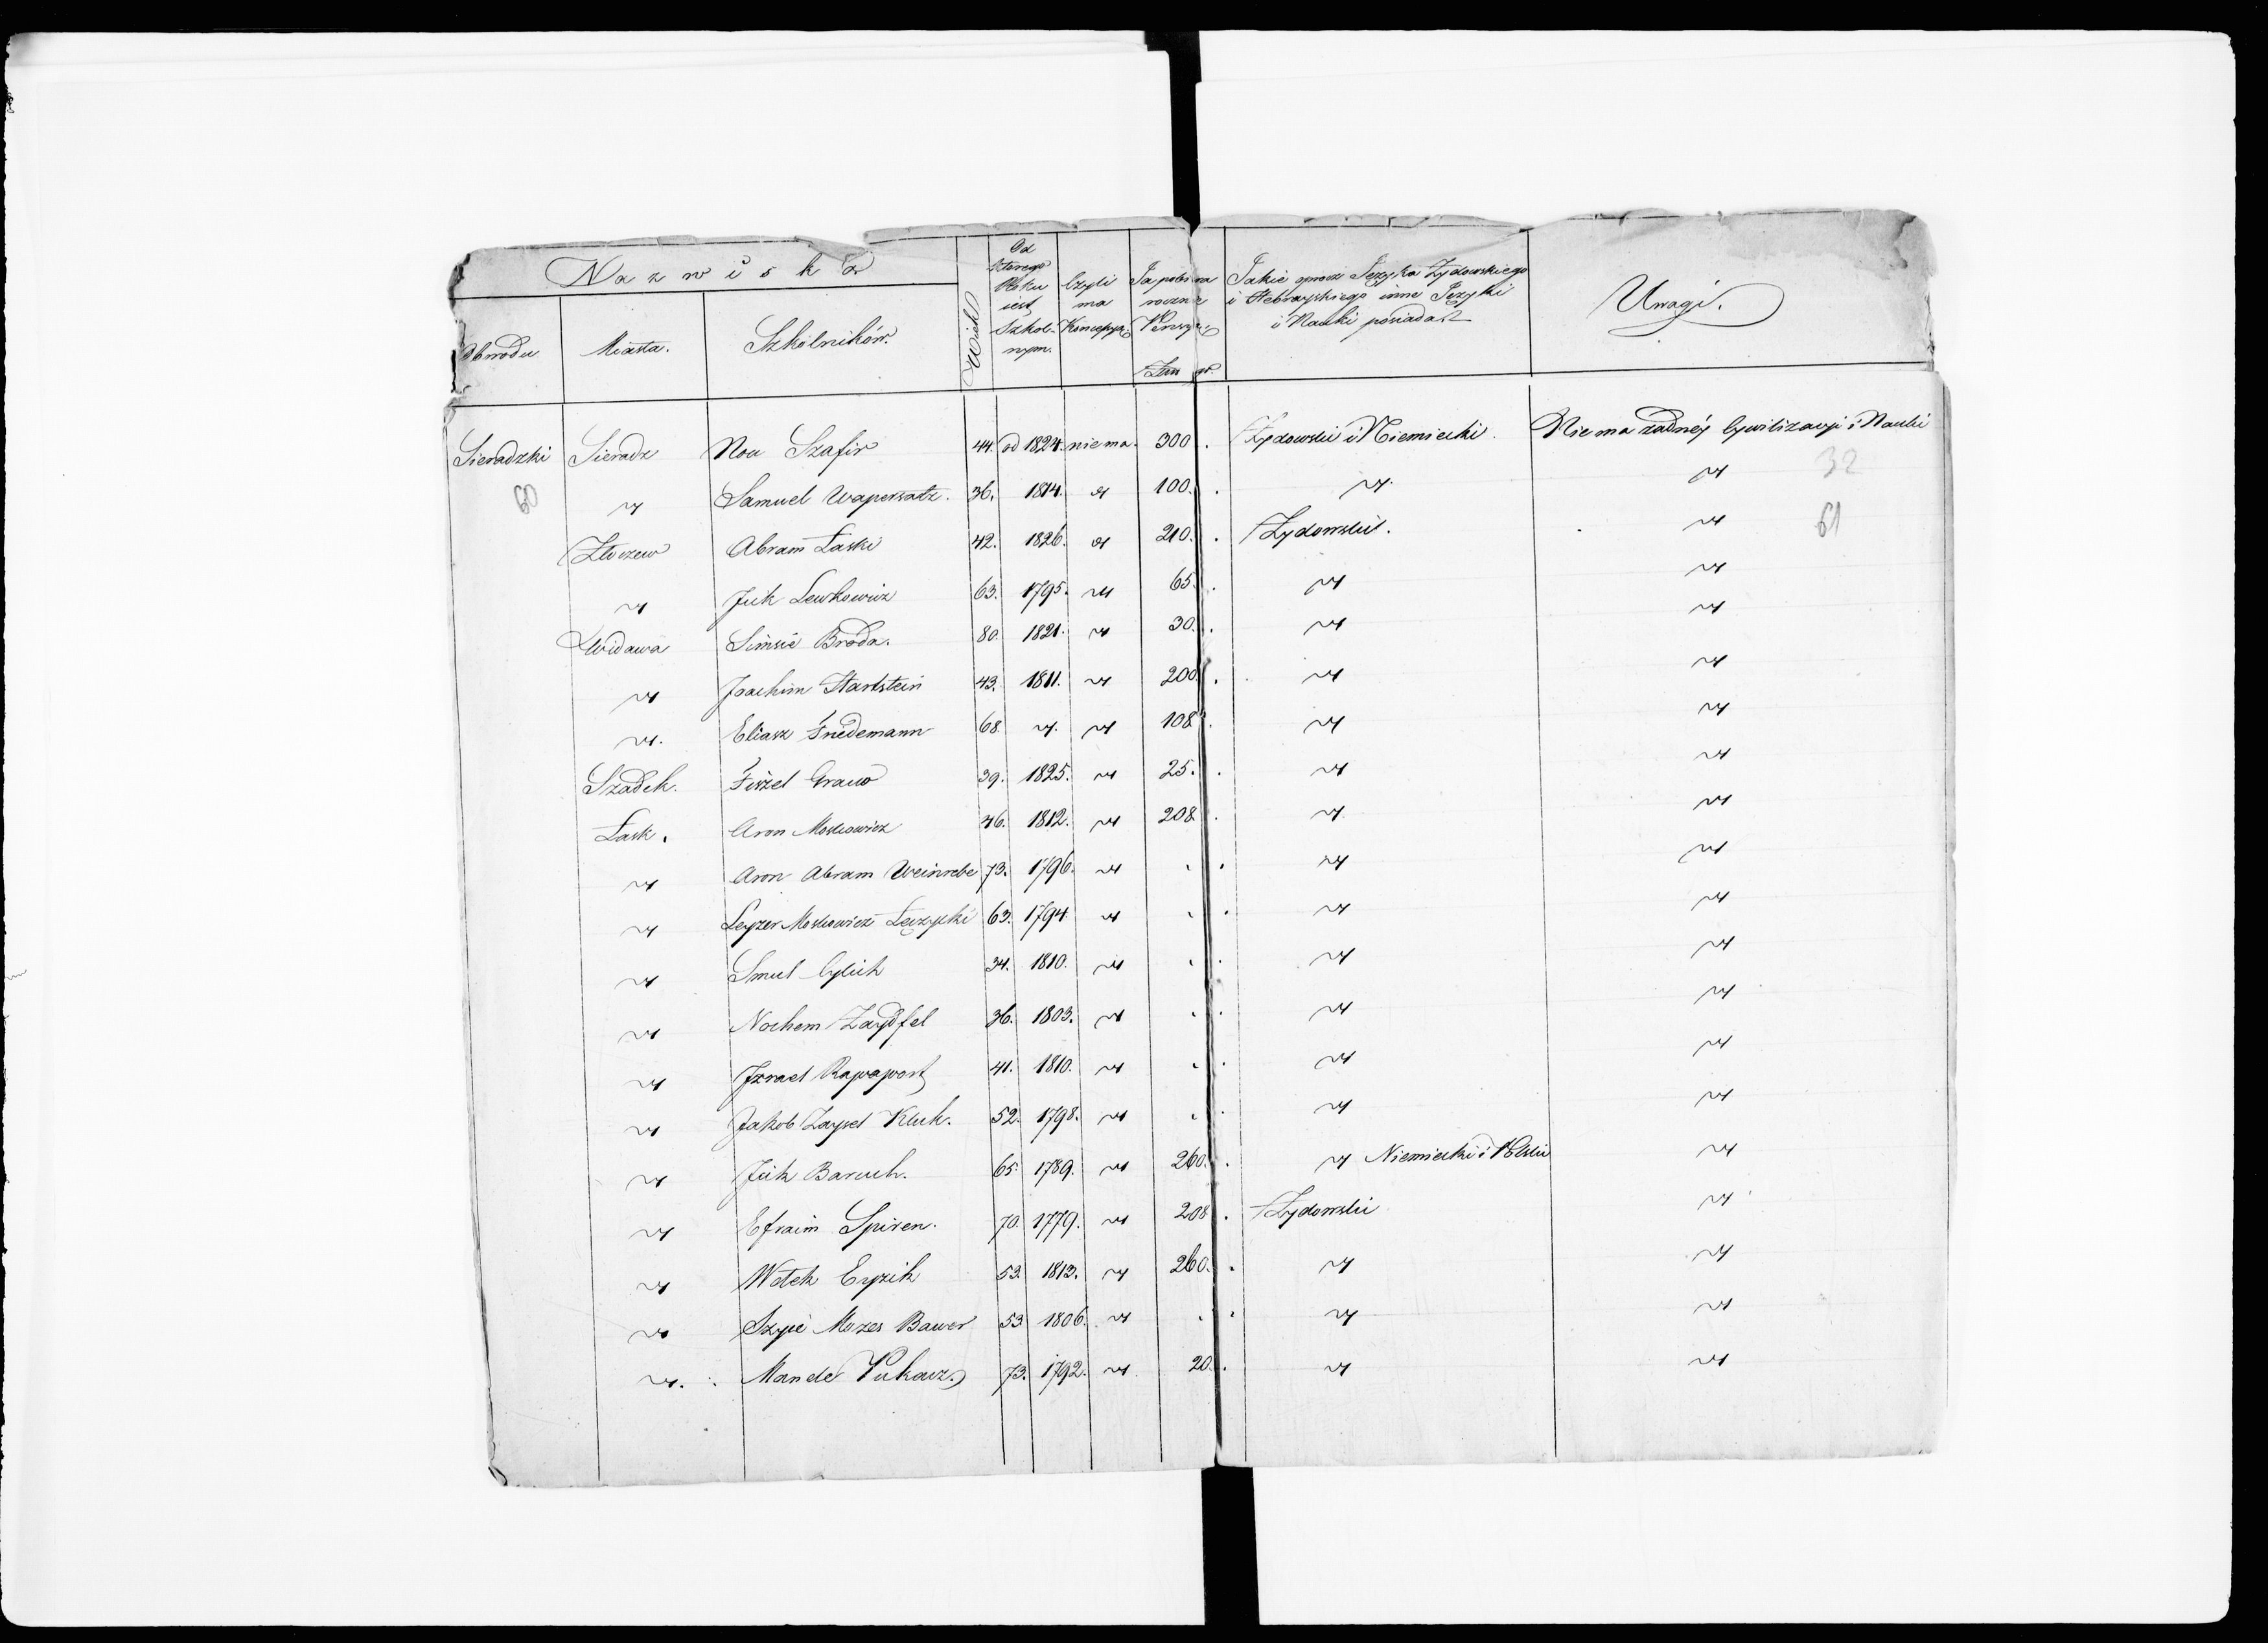 Nazwiska
Obwodu Miasta. Szkolników. Wiek Od którego Roku iest Szkolnym. Czyli ma Koncepyą Ja pobiera roczn Pensyą Złp gr. Jakie oprócz Języka Żydowskiego i Hebrayskiego inne Języki i Nauki posiada Uwagi.
Sieradzki Sieradz Noa Szafir 44. od 1824. niema. 300 . Żydowski i Niemiecki. Nie ma żadnéj Cywilizacyi i Nauki
60 32
" Samuel Wapersatz. 36. 1814. " 100. . " "
Złoczew Abram Łaski 42. 1826. " 210. . Żydowski. " 61
" Jcik Lewkowicz 63. 1795. " 65. . " "
Widawa Simsie Broda. 80. 1821. " 30. . " "
" Joachim Hartstein 43. 1811. " 200. . " "
". Eliasz Friedemann 68. ". " 108. . " "
Szadek. Fiszel Graus 39. 1825. " 25. . " "
Łask. Aron Moskowicz 46. 1812. " 208. . " "
" Aron Abram Weinrebe 73. 1796. " . . " "
" Leyzer Moskowicz Łęczycki 63. 1794. " . . " "
" Smul 34. 1810. " . . " "
" Nochem Zaydfel 36. 1803. " . . " "
" Jzrael Rapaport 41. 1810. " . . " "
" Jakob Zaysel Kluk. 52. 1798. " . . " "
" Jcik Baruch. 65. 1789. " 260. . " Niemiecki i Polski "
" Efraim Spiren. 70. 1779. " 208 . Żydowski "
" Wolek Eyzik 53. 1813. " 260. . " "
" Szyie Mozes Bawer 53 1806. " . . " "
". Mandel 73. 1792. " 20. . " "